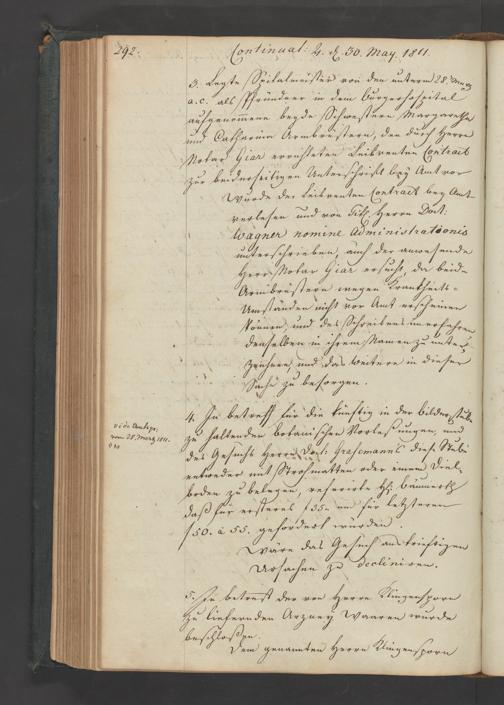 292. Continuat: 4. d. 30. May 1811.
3. Legte Spitalmeister von den unterm 28. Merz
a. c. als Pfründner in dem Bürgerhospital
aufgenommene beyde Schwestern Margaretha
und Catharina Armbrüstern, den durch Herrn
Notar Giar errichteten Leibrenten Contract
zur beiderseitigen Unterschrift bey Amt vor
Wurde der Leibrenten Contract bey Amt
verlesen und von Tit. Herrn Doct:
Wagner nomine Administrationis
unterschrieben, auch der anwesende
Herr Notar Giar ersucht, da beide
Armbrüstern wegen Krankheits-
Umständen nicht vor Amt erscheinen
können, und des Schreibens unerfahren
denselben in ihrem Namen zu unter-
zeichnen, und das weitere in dieser
Sache zu besorgen.
vide Amtspr.
vom 28. Merz 1811.
4. In betreff für die künftig in der Bilder Stube
zu haltenden botanischen Vorlesungen und
des Gesuchs Herrn Doct: diese Stube
entweder mit Strohmatten oder einem Diel-
boden zu belegen, referirte H. Bäumerth
daß für ersteres f 35. und für letzteren
f 50. à 55. gefordert würden.
Wäre das Gesuch aus triftigen
Ursachen zu decliniren.
5. In betreff der von Herrn Klingensporn
zu liefernden Arzney Waaren wurde
beschloßen
Dem genannten Herrn Klingensporn